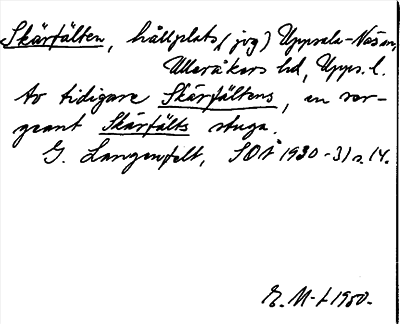 Skärfälten, hållplats (jvg) Uppsala-Näsen,
Ulleråkers hd, Upps. l.
Av tidigare Skärfältens, en ser-
geant Skärfälts stuga.
G. Langenfelt, SOÅ 1930-31 s. 14.
E. M-t 1950.